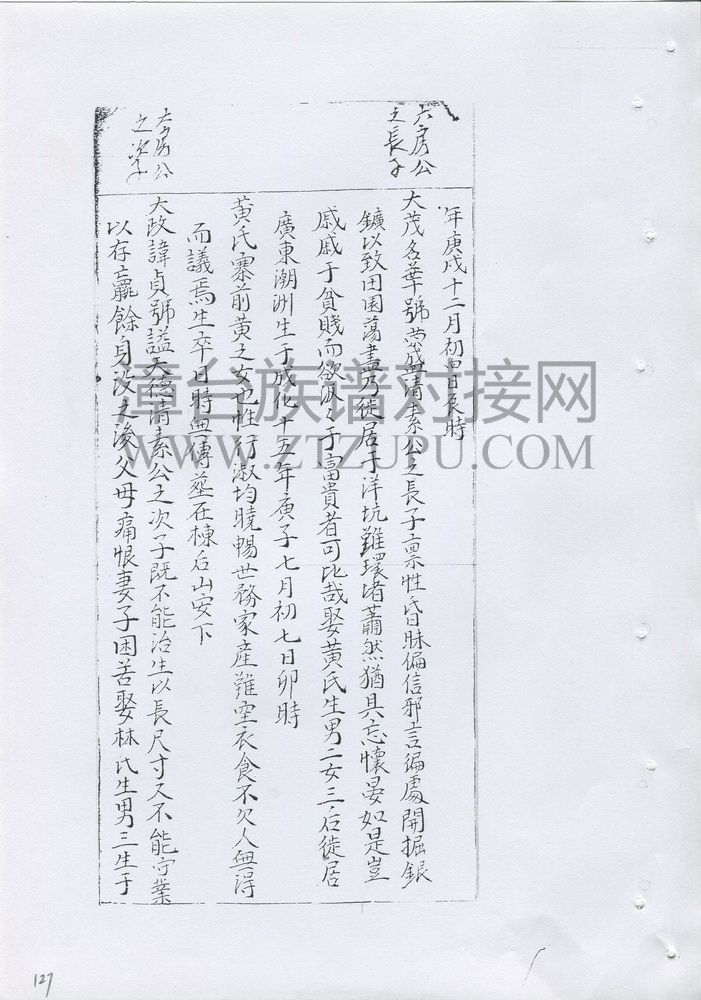 六房公
之長子
年庚戌十二月初四日辰時
大茂名華號榮盛清素公之長子稟性昏昧偏信邪言徧處開掘銀
鑛以致田園蕩盡乃徙居于洋坑雖環堵蕭然猶具忘懷晏如是豈
戚戚于貧賤而欲汲々于富貴者可比哉娶黃氏生男二女三后徙居
廣東潮洲生于成化十五年庚子七月初七日卯時
黃氏寨前黃之女也惟行淑均曉暢世務家產雖空衣食不欠人無得
而議焉生卒日時無傳葬在棟后山安下
六房公
之次子
大政諱貞號謚天德清素公之次子既不能治生以長尺寸又不能守業
以存贏餘身沒之後父母痛恨妻子困苦娶林氏生男三生于
漳台族谱对接网
WWW.ZTZUPU.COM
127